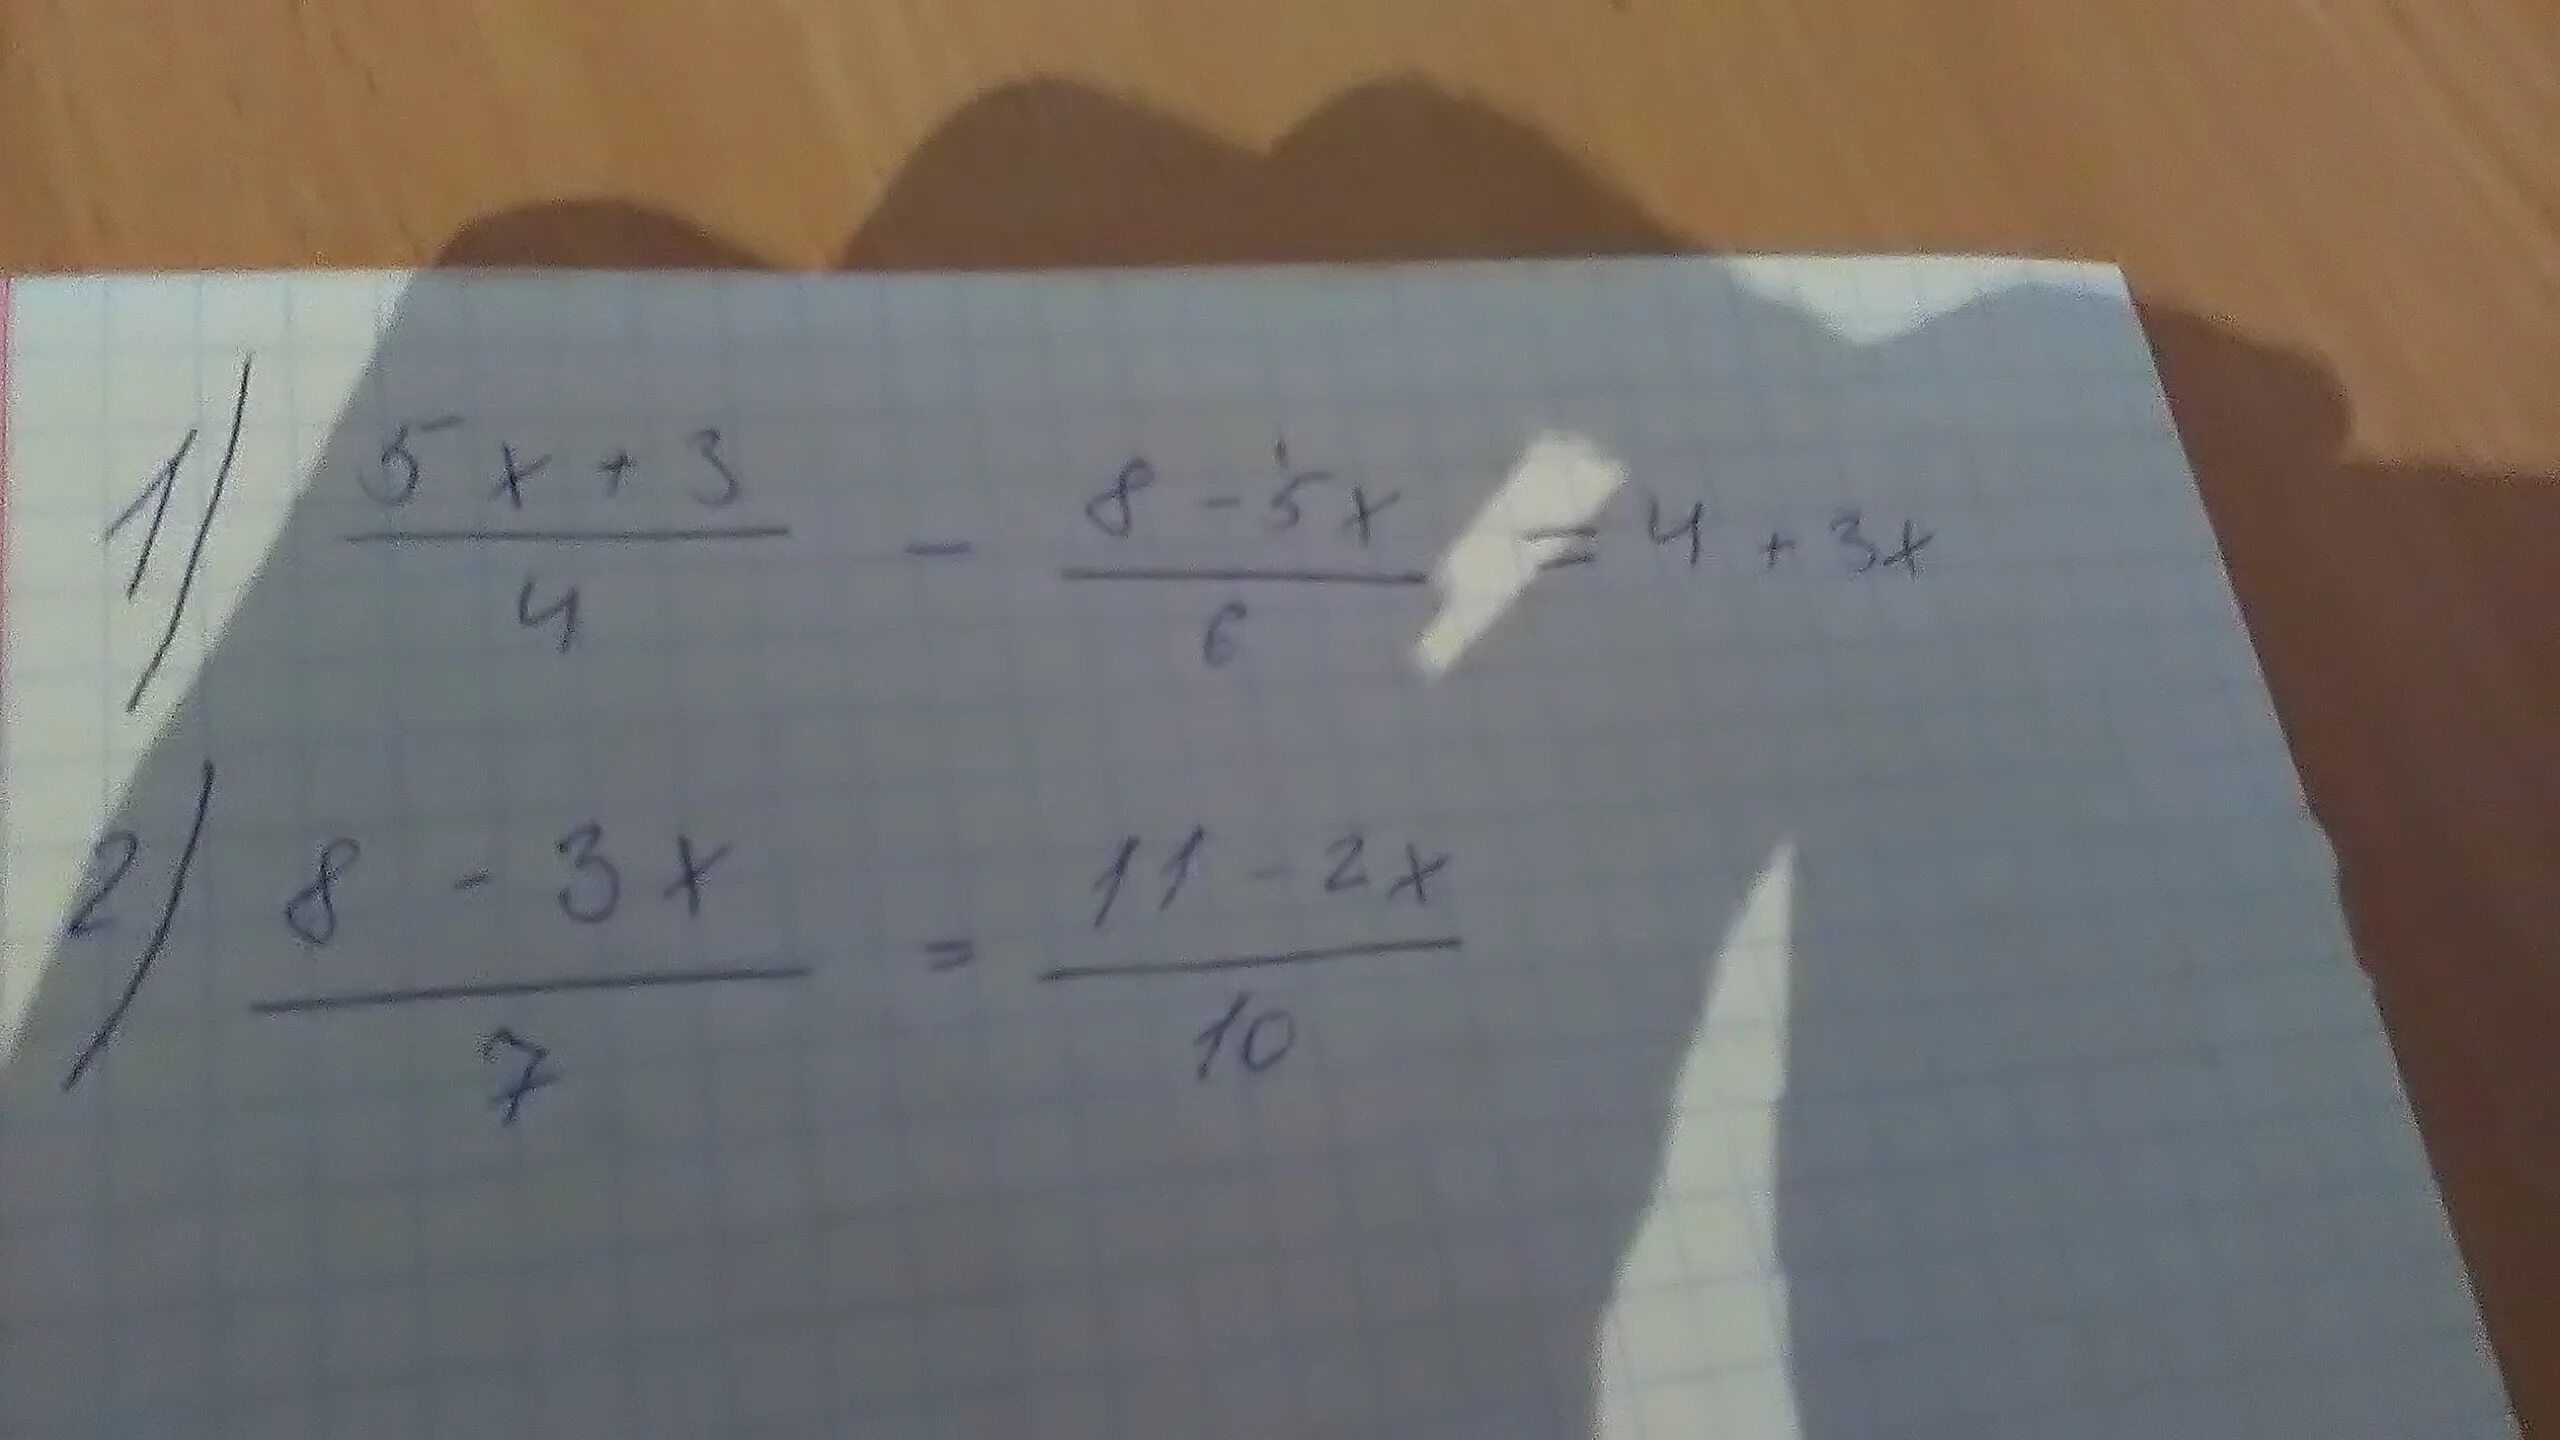 1) (5x + 3)/4 - (8 - 5x)/6 = 4 + 3x
2) (8 - 3x)/7 = (11 - 2x)/10